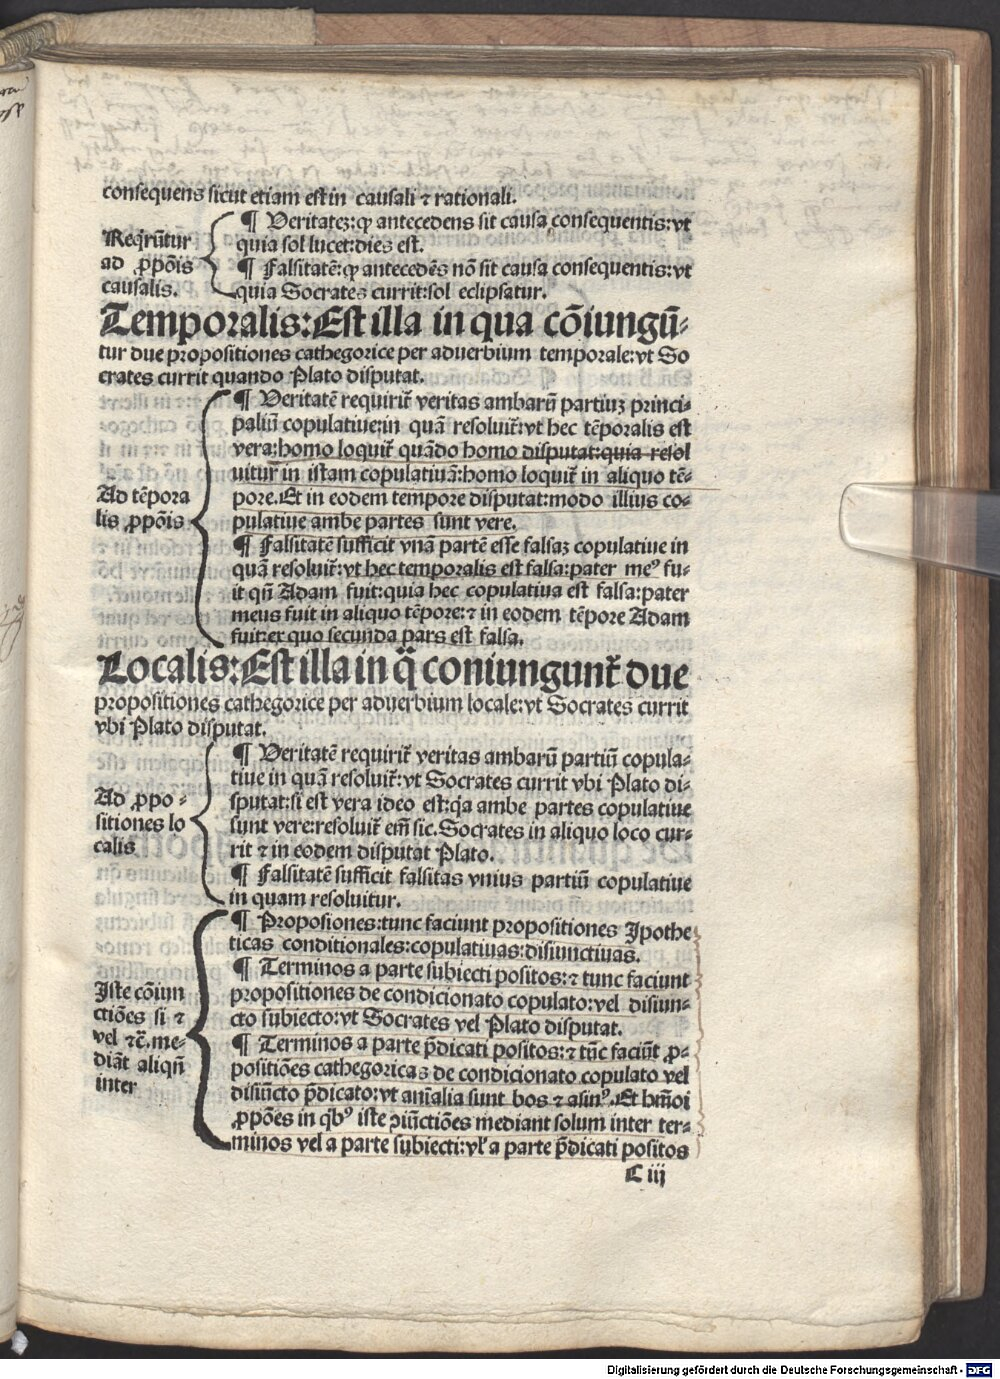 consequens sicut etiam est in causali ⁊ rationali.
Reqͥrūtur
ad ꝓpōis
causalis.
¶ Veritatēꝫ: ꝙ antecedens sit causa consequentis: vt
quia sol lucet: dies est.
¶ Falsitatē: ꝙ antecedēs nō sit causa consequentis: vt
quia Socrates currit: sol eclipsatur.
Temporalis: Est illa in qua cōiungū-
tur due propositiones cathegorice per aduerbium temporale: vt So
crates currit quando Plato disputat.
Ad tēpora
lis ꝓpōis
¶ Veritatē requirit̄ veritas ambarū partiuꝫ princi-
paliū copulatiue: in quā resoluit̄: vt hec tēporalis est
vera: homo loquit̄ quādo homo disputat: quia resol
uitur in istam copulatiuā: homo loquit̄ in aliquo tē-
pore. Et in eodem tempore disputat: modo illius co-
pulatiue ambe partes sunt vere.
¶ Falsitatē sufficit vnā partē esse falsaꝫ copulatiue in
quā resoluit̄: vt hec temporalis est falsa: pater meꝰ fu-
it qn̄ Adam fuit: quia hec copulatiua est falsa: pater
meus fuit in aliquo tēpore: ⁊ in eodem tēpore Adam
fuit: ex quo secunda pars est falsa.
Localis: Est illa in q̄ coniungunt̄ due
propositiones cathegorice per aduerbium locale: vt Socrates currit
vbi Plato disputat.
Ad ꝓpo-
sitiones lo
calis
¶ Veritatē requirit̄ veritas ambarū partiū copula-
tiue in quā resoluit̄: vt Socrates currit vbi Plato di-
sputat: si est vera ideo est: qͥa ambe partes copulatiue
sunt vere: resoluit̄ em̄ sic. Socrates in aliquo loco cur-
rit ⁊ in eodem disputat Plato.
¶ Falsitatē sufficit falsitas vnius partiū copulatiue
in quam resoluitur.
Iste cōiun
ctiōes si ⁊
vel ⁊c̄. me-
diāt aliqn̄
inter
¶ Proposiones: tunc faciunt propositiones Ipothe
ticas conditionales: copulatiuas: disiunctiuas.
¶ Terminos a parte subiecti positos: ⁊ tunc faciunt
propositiones de condicionato copulato: vel disiun-
cto subiecto: vt Socrates vel Plato disputat.
¶ Terminos a parte p̄dicati positos: ⁊ tūc faciūt ꝓ-
positiōes cathegoricas de condicionato copulato vel
disiūcto p̄dicato: vt an̄ialia sunt bos ⁊ asinꝰ. Et hm̄oi
ꝓpōes in qͥbꝰ iste ꝯiūctiōes mediant solum inter ter-
minos vel a parte subiecti: vl̓ a parte p̄dicati positos
C iij
Digitalisierung gefördert durch die Deutsche Forschungsgemeinschaft - DFG